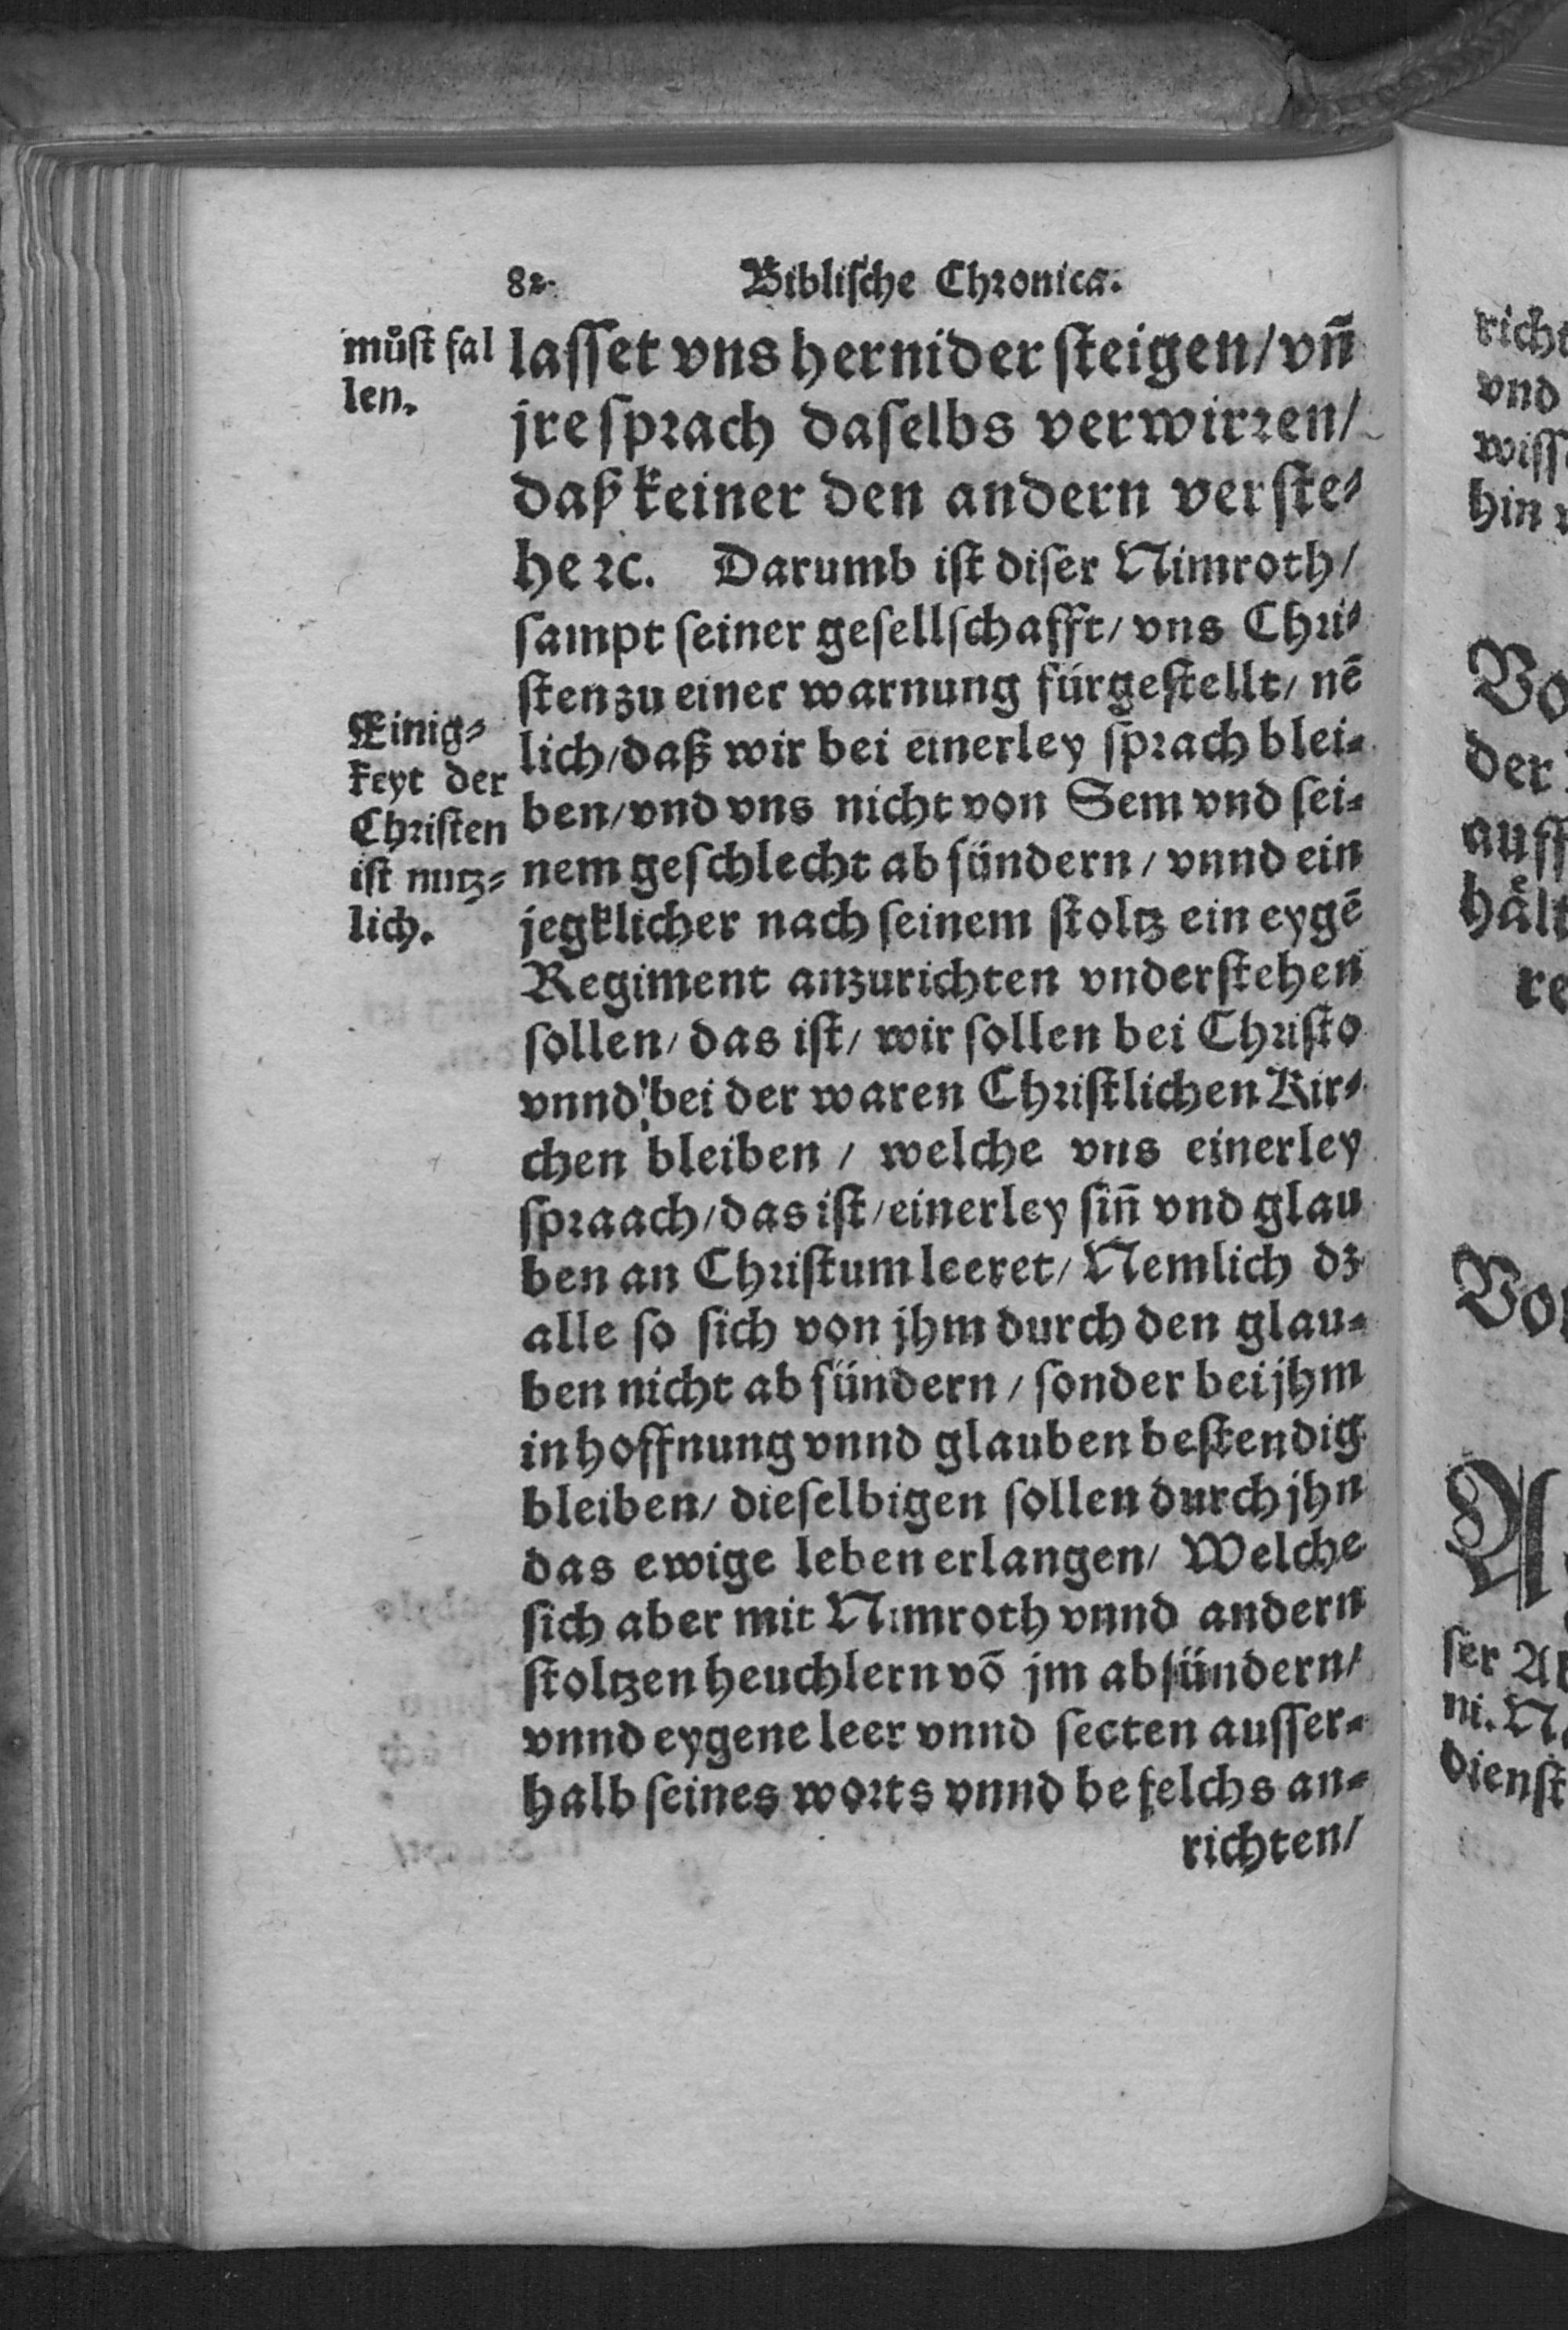 82. Biblische Chronica.
můſt fal
len.
laſſet vns hernider ſteigen/ vn̄
jre ſprach daſelbs verwirren/
daß keiner den andern verſte⸗
he ꝛc. Darumb iſt diſer Nimroth/
ſampt ſeiner geſellſchafft/ vns Chri⸗
ſten zu einer warnung fürgeſtellt/ nē
lich/ daß wir bei einerley ſprach blei⸗
ben/ vnd vns nicht von Sem vnd ſei⸗
nem geſchlecht abſündern/ vnnd ein
jegklicher nach ſeinem ſtoltz ein eygē
Regiment anzurichten vnderſtehen
ſollen/ das iſt/ wir ſollen bei Chriſto
vnnd bei der waren Chriſtlichen Kir⸗
chen bleiben/ welche vns einerley
ſpraach/ das iſt/ einerley ſin̄ vnd glau
ben an Chriſtum leeret/ Nemlich dz
alle ſo ſich von jhm durch den glau⸗
ben nicht abſündern/ ſonder bei jhm
in hoffnung vnnd glauben beſtendig
bleiben/ dieſelbigen ſollen durch jhn
das ewige leben erlangen/ Welche
ſich aber mit Nimroth vnnd andern
ſtoltzen heuchlern vō jm abſündern/
vnnd eygene leer vnnd ſecten auſſer⸗
halb ſeines worts vnnd befelchs an⸗
richten/
Einig⸗
keyt der
Chriſten
iſt nutz⸗
lich.
richt
vnd
wiſſ
hin
Vo
der
auff
hålt
re
Vo
A
ſer
ni.
dienſt